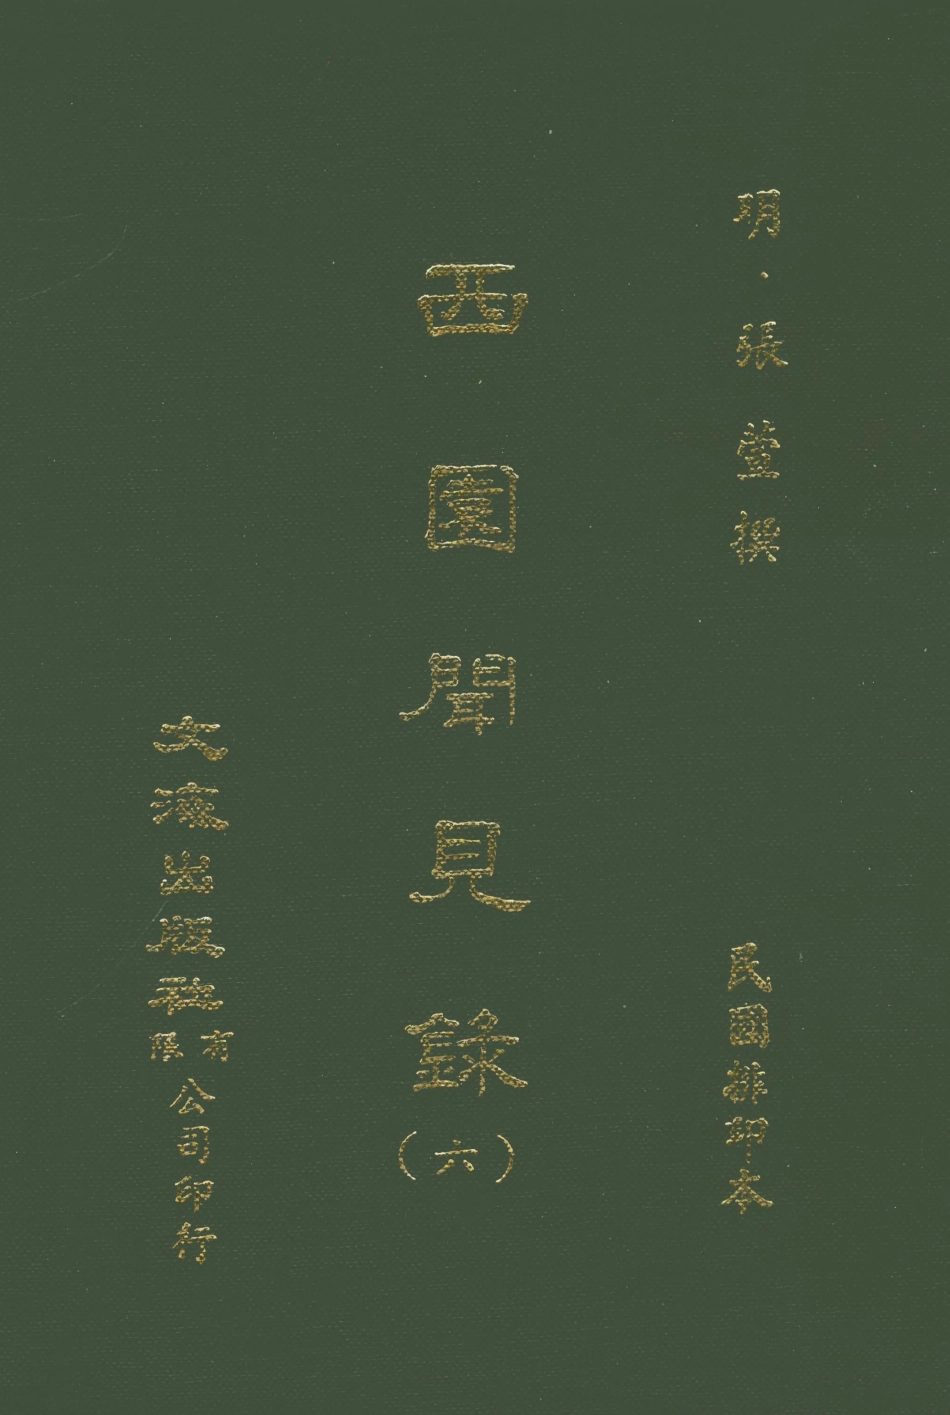 明・張萱撰
民國排印本
西園聞見錄
(六)
文海出版社有限公司印行